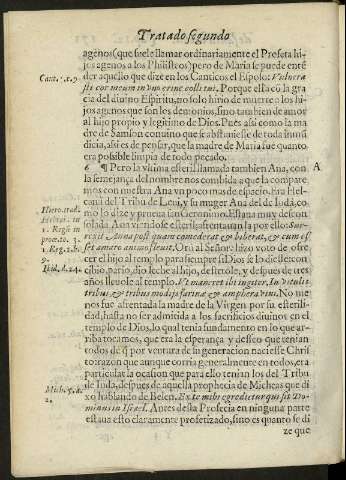 Tratado segundo
agenos (que suele llamar ordinariamente el Profeta hi-
jos agenos a los Philisteos) pero de Maria se puede enté
der aquello que dize en los Canticos el Esposo: Vulnera
Cant. 4. c. 9
sti cor meum in vno crine colli tui. Porque esta cō la gra
cia del diuino Espiritu, no solo hirio de muerte a los hi-
jos agenos que son los demonios, sino tambien de amor
al hijo propio y legitimo de Dios. Pues assi como la ma
dre de Samson conuino que se abstuniesse de toda inmū
dicia, assi es de pensar, que la madre de Maria fue quanto
era possible limpia de todo pecado.
6 ¶ Pero la vltima esteril llamada tambien Ana, con
A
la semejança del nombre nos combida a que la compare
mos con nuestra Ana vn poco mas de espacio. Era Hel-
cana del Tribu de Leui, y su muger Ana del de Iuda, co-
mo lo dize y prueua san Geronimo. Estaua muy descon
solada Ana viendose esteril: sentaron la por esso: Sur-
rexit Anna postquam comederat & biberat, & cum es-
set amaro animo, fleuit. Orò al Señor, hizo voto de ofre
cer el hijo al templo para siempre si Dios se lo diesse: con
cibiolo, pariolo, dio leche al hijo, destetole, y despues de tres
1. Reg. 1. b.
9.
años lleuole al templo. Vt maneret ibi iugiter. In vitulis
tribus, & tribus modijs farinæ & amphora vini. No me
nos fue afrentada la madre de la Virgen por su esterili-
dad, hasta no ser admitida a los sacrificios diuinos en el
templo de Dios, lo qual tenia fundamento en lo que ar-
riba tocamos, que era la esperança y desseo que tenian
todos de q̄ por ventura de su generacion naciesse Chris
to: razon que aunque corria generalmente en todos, era
particular la ocasion que para ello tenian los del Tribu
de Iuda, despues de aquella prophecia de Micheas que di
xo hablando de Belen. Ex te mihi egredietur qui sit Do-
Mich. 5. a.
2.
minus in Israel. Antes desta Profecia en ninguna parte
estaua esto claramente profetizado, sino es quanto se di
ze que